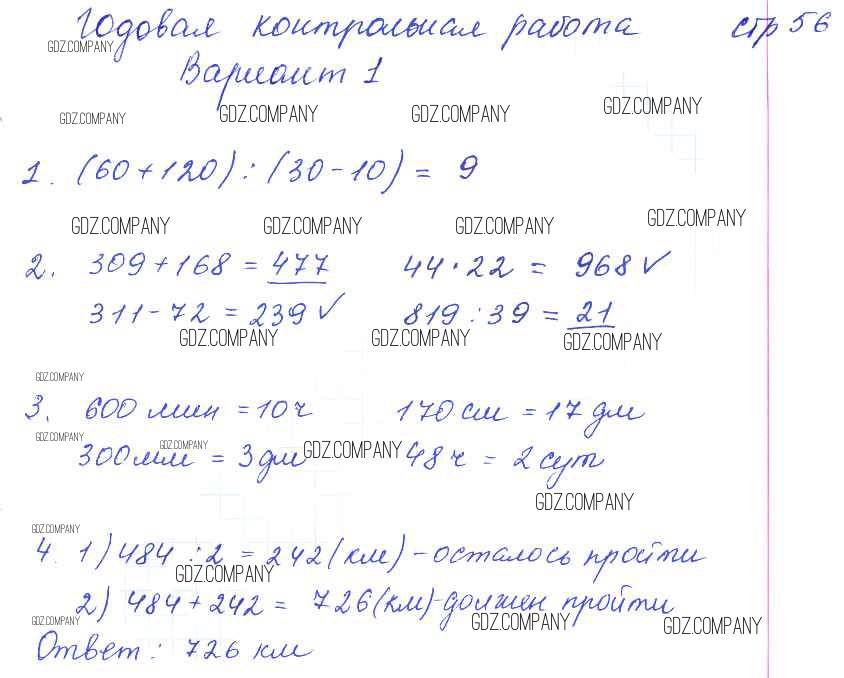 Годовая контрольная работа стр 56
GDZ.COMPANY
Вариант 1
GDZ.COMPANY GDZ.COMPANY GDZ.COMPANY GDZ.COMPANY
1. (60+120):(30-10) = 9
GDZ.COMPANY GDZ.COMPANY GDZ.COMPANY GDZ.COMPANY
2. 309+168 = 477 44·22 = 968 ✓
311-72 = 239 ✓ 819:39 = 21
GDZ.COMPANY GDZ.COMPANY GDZ.COMPANY
GDZ.COMPANY
3. 600 мин = 10 ч 170 см = 17 дм
GDZ.COMPANY GDZ.COMPANY GDZ.COMPANY
300 мм = 3 дм 48 ч = 2 сут
GDZ.COMPANY
GDZ.COMPANY
4. 1) 484 : 2 = 242 (км) - осталось пройти
GDZ.COMPANY
2) 484 + 242 = 726 (км) - должен пройти
GDZ.COMPANY GDZ.COMPANY GDZ.COMPANY
Ответ: 726 км